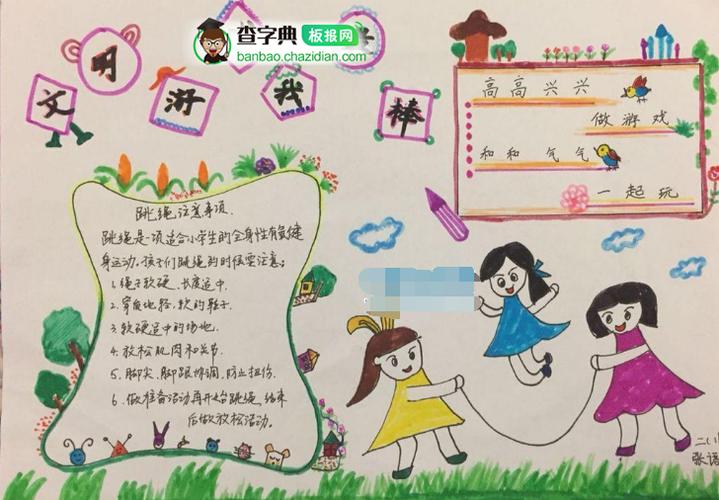 查字典 板报网
banbao.chazidian.com
文 明 游 我 棒
高高兴兴
做游戏
和和气气
一起玩
跳绳注意事项.
跳绳是一项适合小学生的全身性有氧健
身运动,孩子们跳绳的时候要注意:
1.绳子软硬、长度适中.
2.穿质地轻,软的鞋子.
3.软硬适中的场地.
4.放松肌肉和关节.
5.脚尖、脚跟协调,防止扭伤.
6.做准备活动再开始跳绳,结束
后做放松活动。
二(1
张语